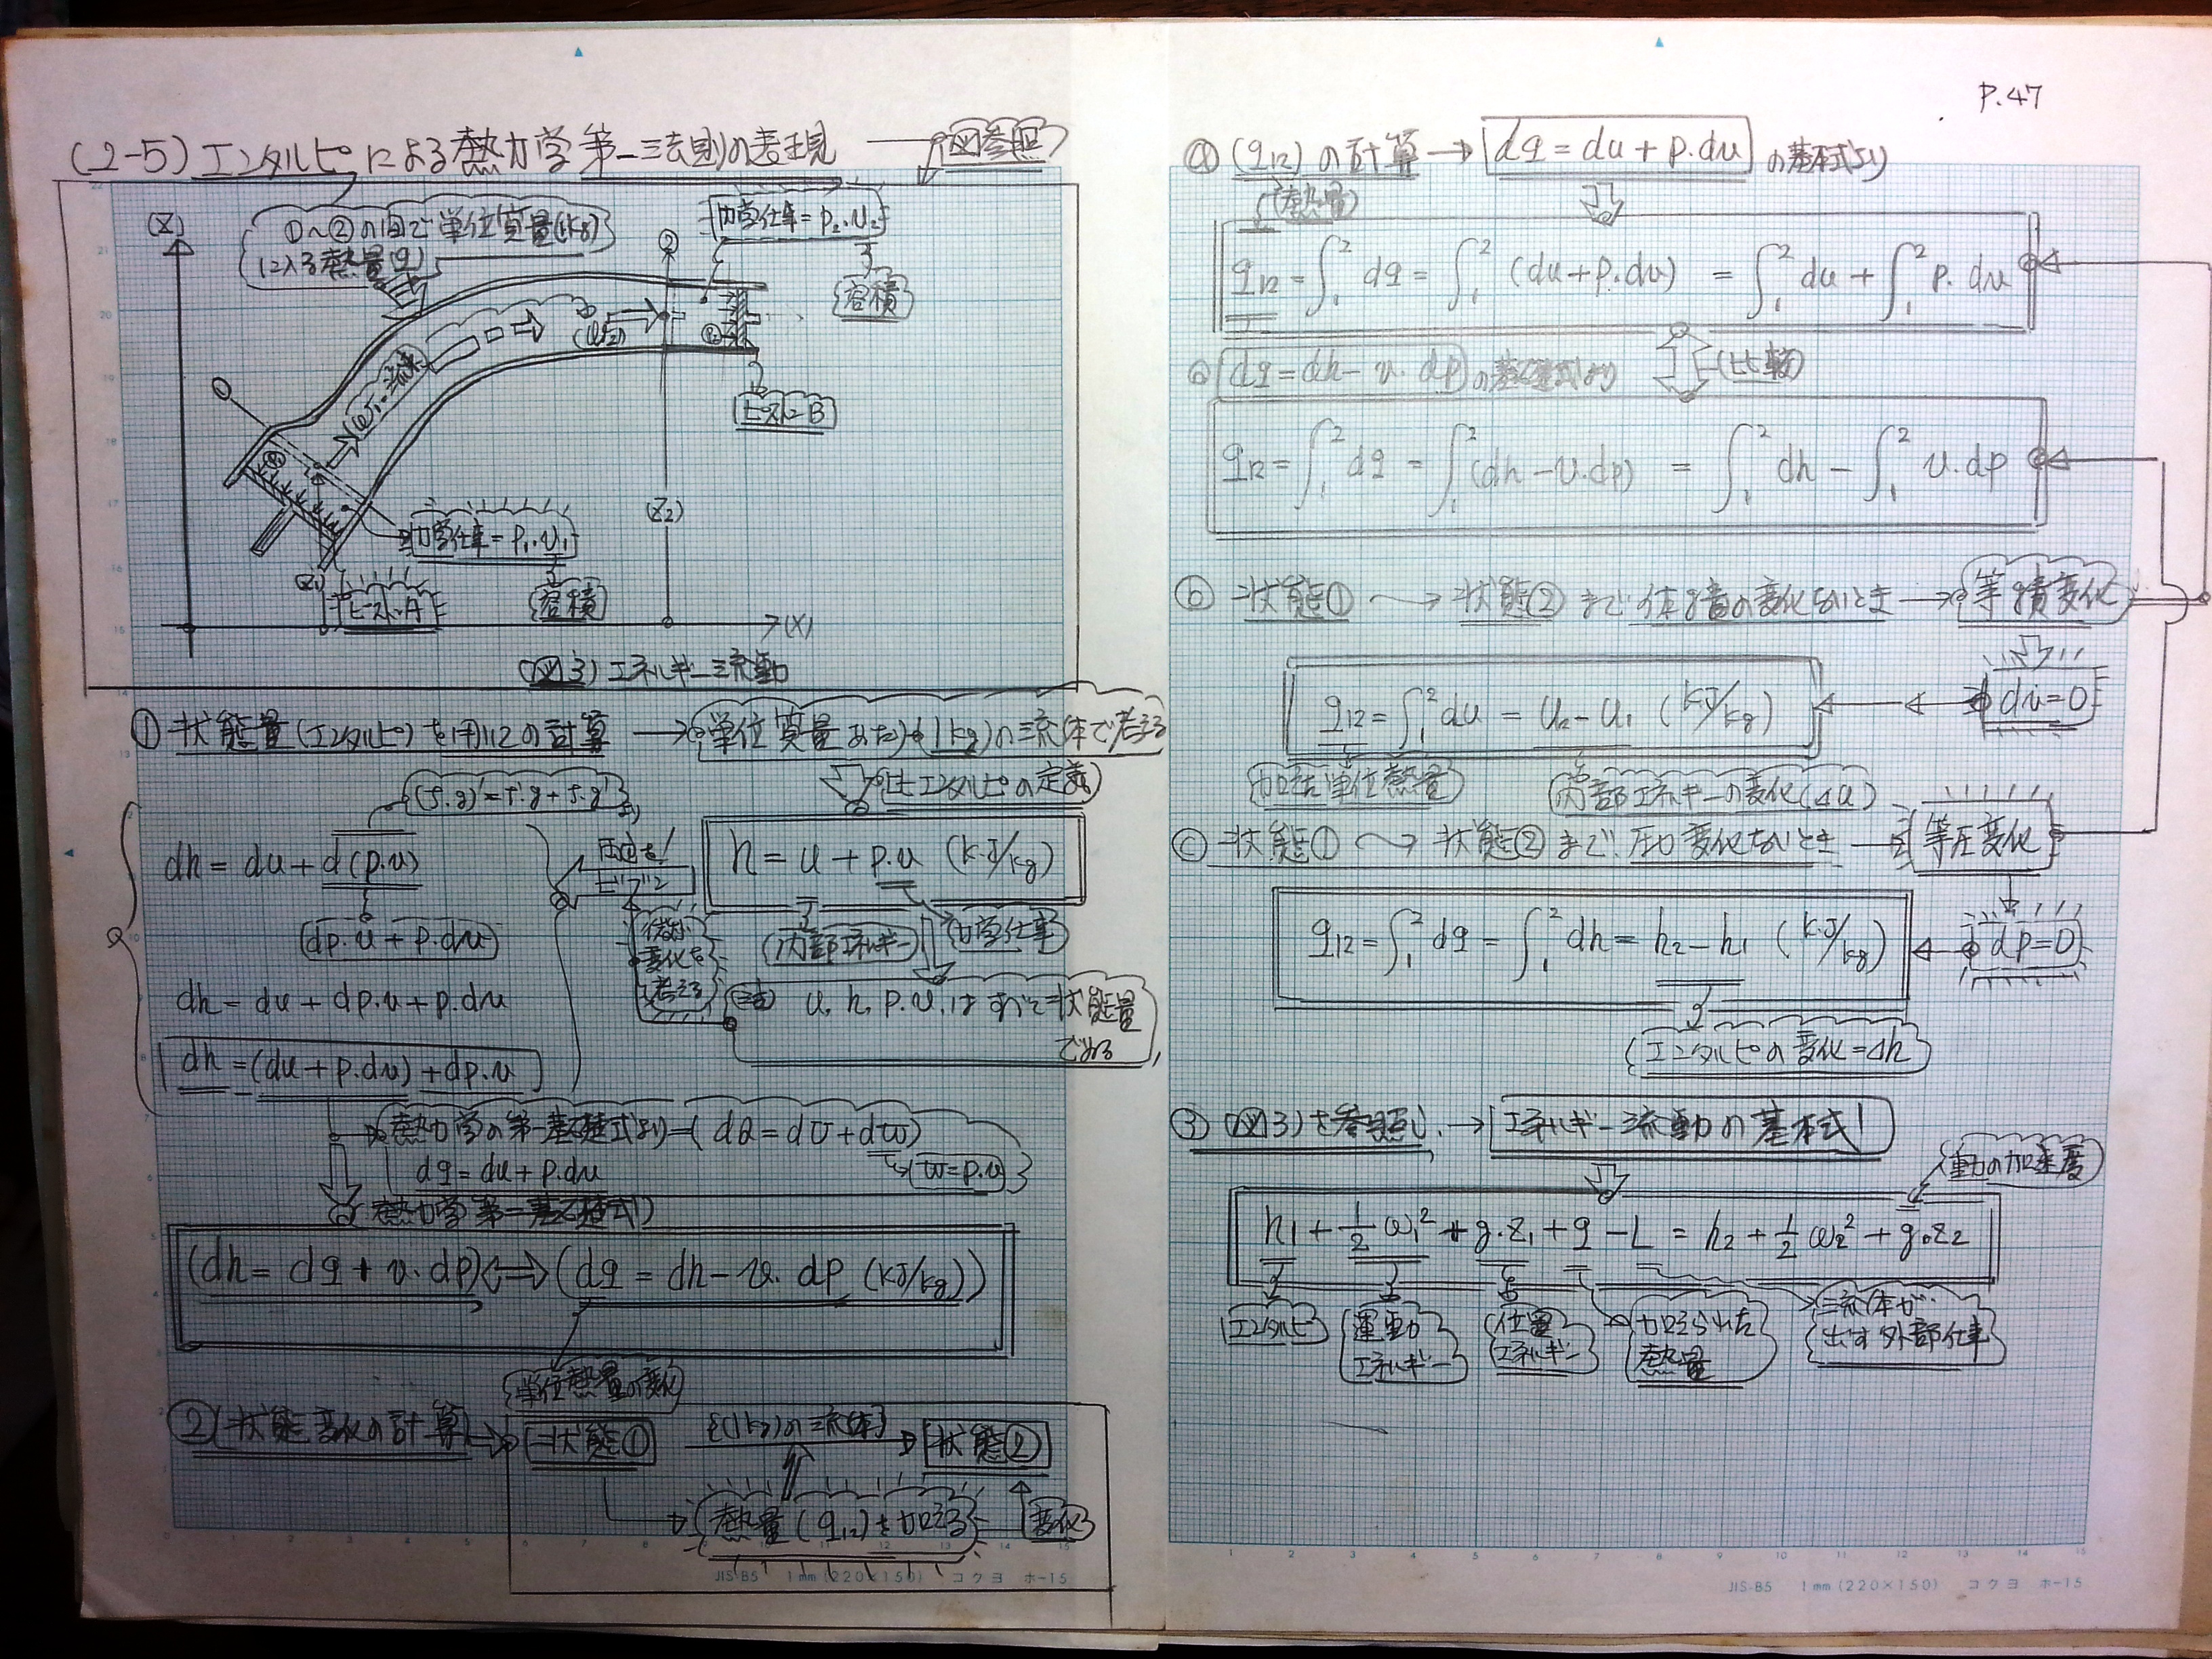 P.47
(2-5) エンタルピによる熱力学第一法則の表現 → 図参照
(Z)
①~②の間で単位質量(1kg)
に入る熱量(q)
力学仕事=P₂.V₂
容積
②
(ω₂)
P₂
ピストンB
①
ω₁=流速
P₁
力学仕事=P₁.V₁
容積
(Z₂)
(Z₁)
ピストンA
(X)
(図3) エネルギー流動
① 状態量(エンタルピ)を用いての計算 → 単位質量あたり(1kg)の流体で考える
比エンタルピの定義
(f.g)'=f'.g+f.g'より
dh = du + d(p.v)
dp.v + p.dv
dh = du + dp.v + p.dv
dh = (du + p.dv) + dp.v
両辺を
微小変化を考える
h = u + p.v (kJ/kg)
内部エネルギー
力学仕事
注) u, h, p, v, はすべて状態量
である
熱力学の第一基礎式より=(dQ = dU + dW)
dq = du + p.dv
(w=p.v)
熱力学第二基礎式)
(dh = dq + v.dp) ⟺ (dq = dh - v.dp (kJ/kg))
単位熱量の変化
② 状態変化の計算 → 状態① {(1kg)の流体} → 状態②
熱量(q₁₂)を加える
変化
JIS-B5 1mm(220×150) コクヨ ホ-15
ⓐ (q₁₂)の計算 → dq = du + p.dv の基本式より
(熱量)
q₁₂ = ∫₁² dq = ∫₁² (du + p.dv) = ∫₁² du + ∫₁² p.dv
(比較)
dq = dh - v.dp の基礎式より
q₁₂ = ∫₁² dq = ∫₁² (dh - v.dp) = ∫₁² dh - ∫₁² v.dp
ⓑ 状態① → 状態② まで体積の変化ないとき → 等積変化
q₁₂ = ∫₁² du = u₂ - u₁ (kJ/kg)
dv=0
加熱単位熱量
内部エネルギーの変化(Δu)
ⓒ 状態① → 状態② まで圧力変化ないとき → 等圧変化
q₁₂ = ∫₁² dq = ∫₁² dh = h₂ - h₁ (kJ/kg)
dp=0
エンタルピの変化=Δh
③ (図3)を参照し、→ エネルギー流動の基本式
重力の加速度
h₁ + ½ω₁² + g.z₁ + q - L = h₂ + ½ω₂² + g.z₂
エンタルピ
運動エネルギー
位置エネルギー
加えられた熱量
流体が出す外部仕事
JIS-B5 1mm(220×150) コクヨ ホ-15